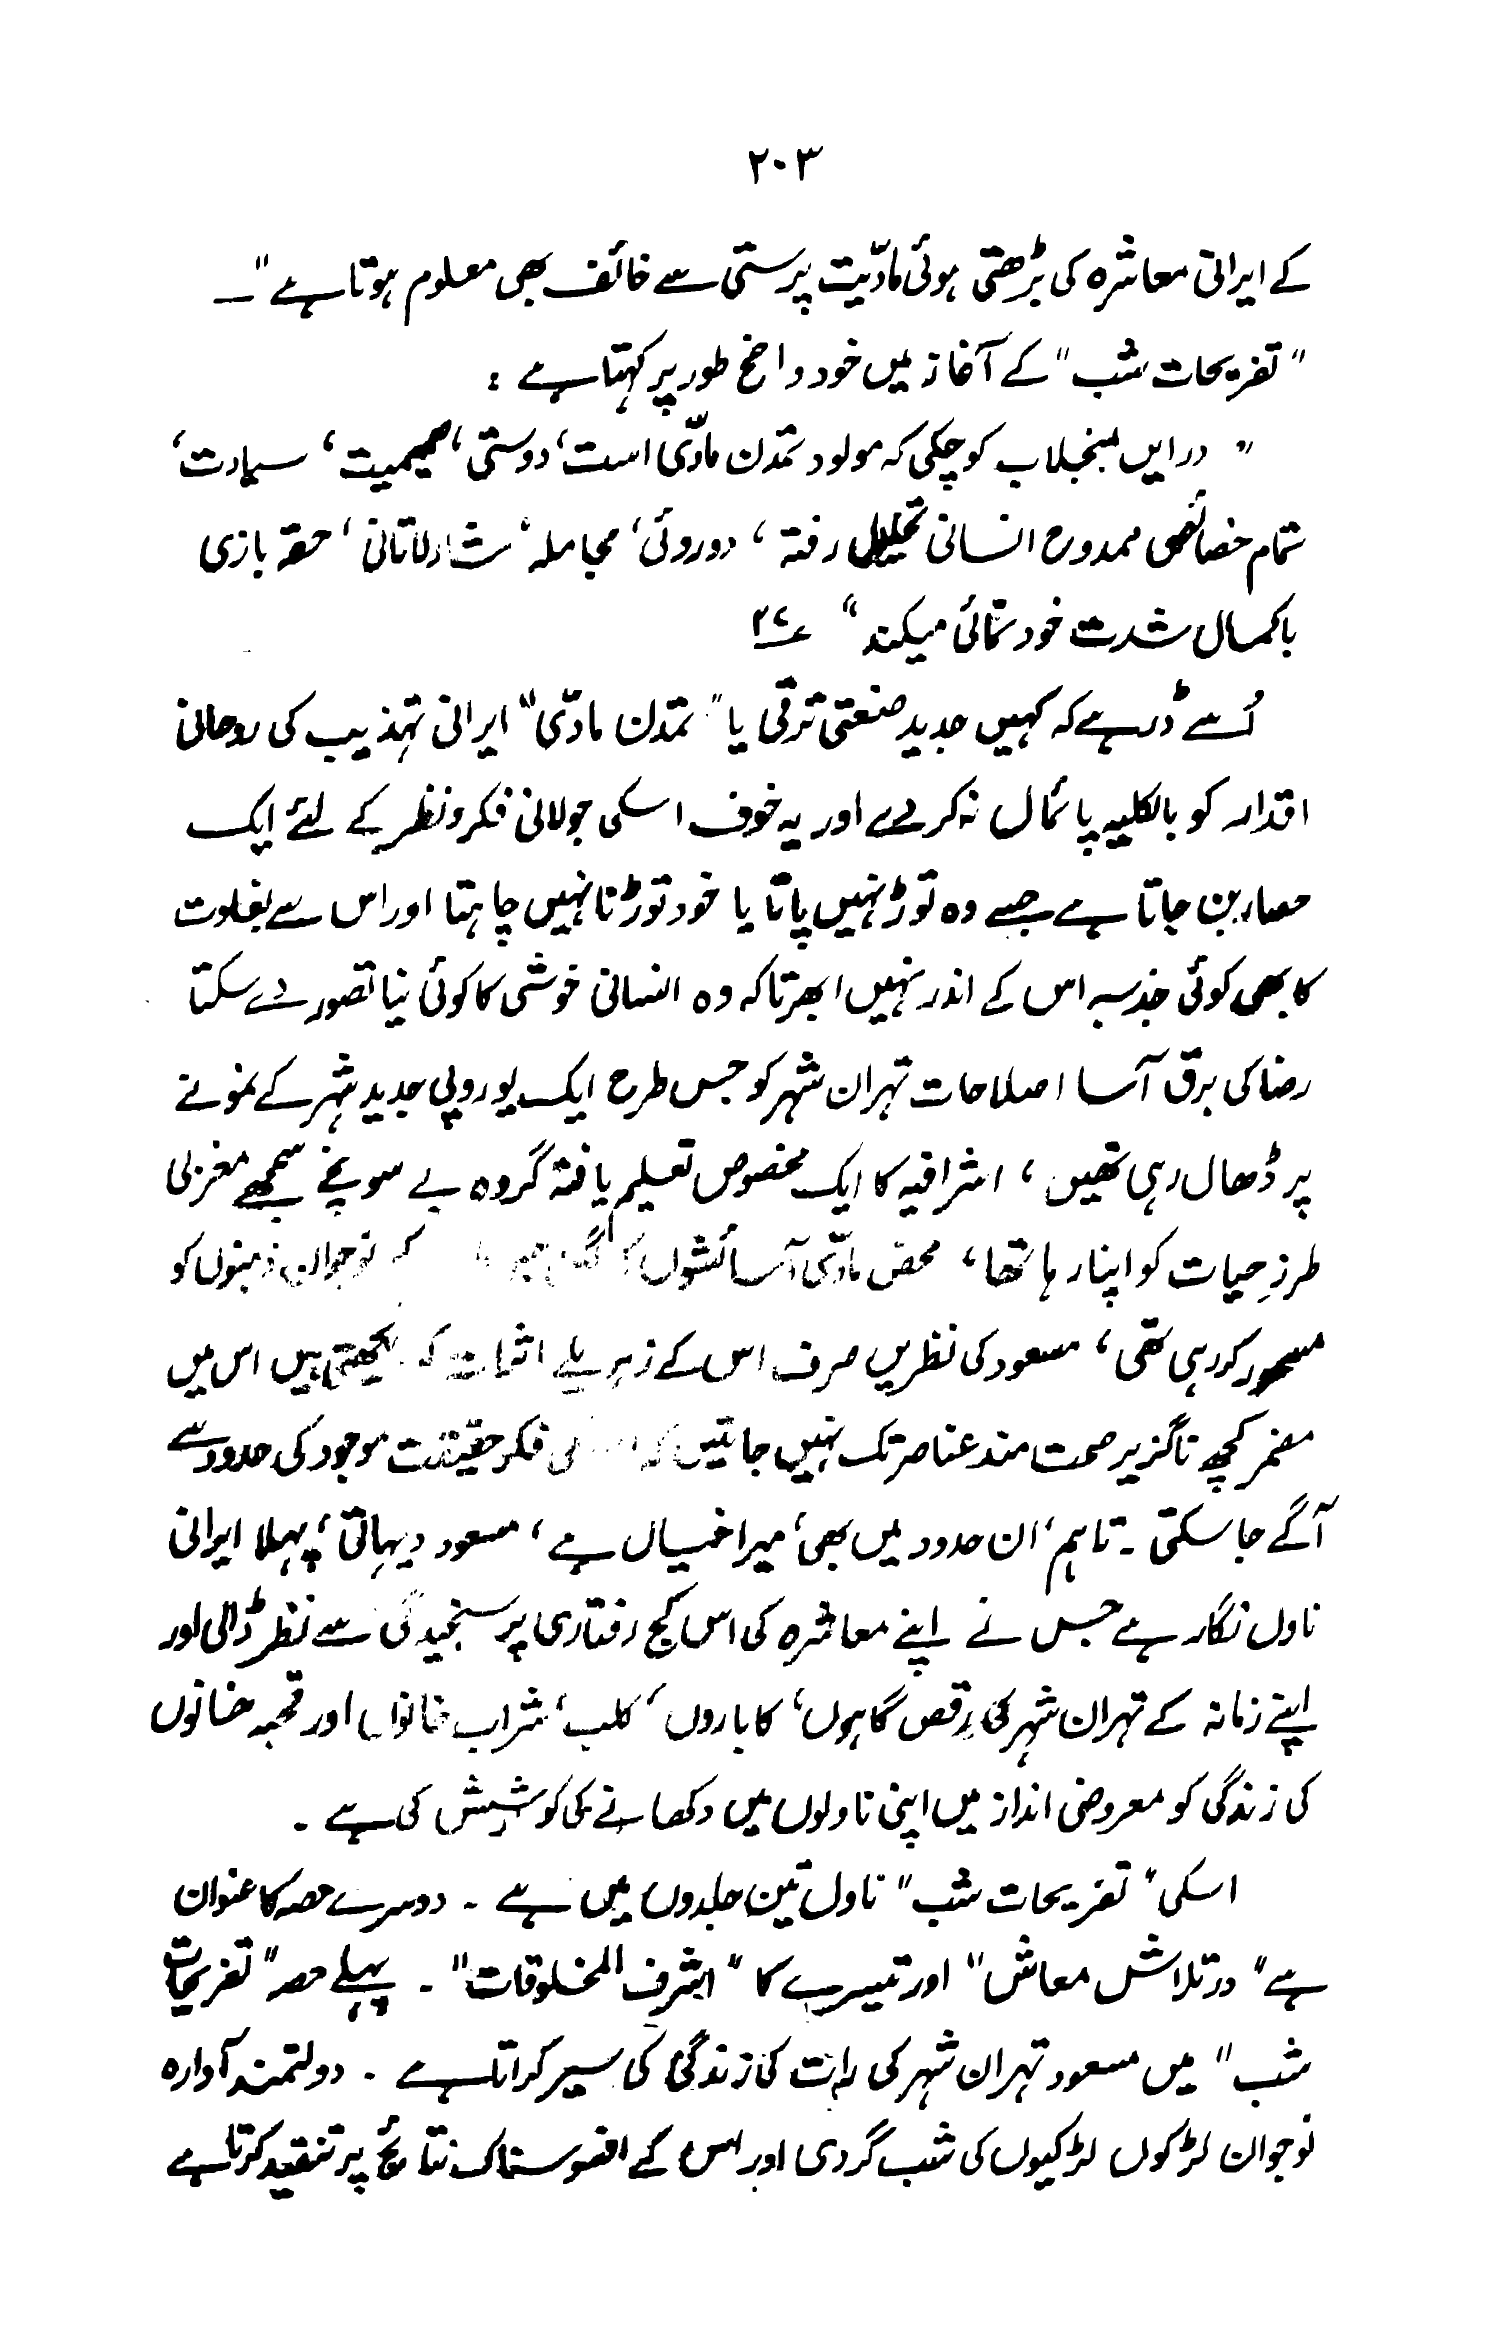 ۲۰۳
کے ایرانی معاشرہ کی بڑھتی ہوئی مادّیت پرستی سے خائف بھی معلوم ہوتا ہے" ـ
"تفریحات شب" کے آغاز میں خود واضح طور پر کہتا ہے :
" در ایں منجلاب کوچکی کہ مولود تمدن مادّی است، دوستی، صمیمیت، سیادت،
تمام خصائص ممدوح انسانی تحلیل رفتہ ، دوروئی، مجاملہ، شارلاتانی، حقہ بازی
باکمال شدت خود نمائی میکند"
اُسے ڈر ہے کہ کہیں جدید صنعتی ترقی یا "تمدن مادّی" ایرانی تہذیب کی روحانی
اقدار کو بالکلیہ پائمال نہ کر دے اور یہ خوف اسکی جولانی فکر و نظر کے لئے ایک
حصار بن جاتا ہے جسے وہ توڑ نہیں پاتا یا خود توڑنا نہیں چاہتا اور اس سے بغاوت
کا بھی کوئی جذبہ اس کے اندر نہیں ابھرتا کہ وہ انسانی خوشی کا کوئی نیا تصور دے سکتا
رضا کی برق آسا اصلاحات تہران شہر کو جس طرح ایک یوروپی جدید شہر کے نمونے
پر ڈھال رہی تھیں ، اشرافیہ کا ایک مخصوص تعلیم یافتہ گروہ بے سوچے سمجھے مغربی
طرزِ حیات کو اپنا رہا تھا، محض مادّی آسائشوں کے نوجوان ذہنوں کو
مسحور کر رہی تھی ، مسعود کی نظریں صرف اس کے زہریلے اثرات کو دیکھتی ہیں اس میں
مضمر کچھ ناگزیر صحت مند عناصر تک نہیں جاتیں فکر حقیقت موجود کی حدود سے
آگے جا سکتی ۔ تاہم، ان حدود میں بھی، میرا خیال ہے ، مسعود دیہاتی، پہلا ایرانی
ناول نگار ہے جس نے اپنے معاشرہ کی اس کج رفتاری پر سنجیدگی سے نظر ڈالی اور
اپنے زمانہ کے تہران شہر کی رقص گاہوں، کاباروں، کلب، شراب خانوں اور قحبہ خانوں
کی زندگی کو معروضی انداز میں اپنی ناولوں میں دکھانے کی کوشش کی ہے ۔
اسکی "تفریحات شب" ناول تین جلدوں میں ہے ۔ دوسرے حصہ کا عنوان
ہے "در تلاش معاش" اور تیسرے کا "اشرف المخلوقات" ۔ پہلے حصہ "تفریحات
شب" میں مسعود تہران شہر کی رات کی زندگی کی سیر کراتا ہے ۔ دولتمند آوارہ
نوجوان لڑکوں لڑکیوں کی شب گردی اور اس کے افسوسناک نتائج پر تنقید کرتا ہے